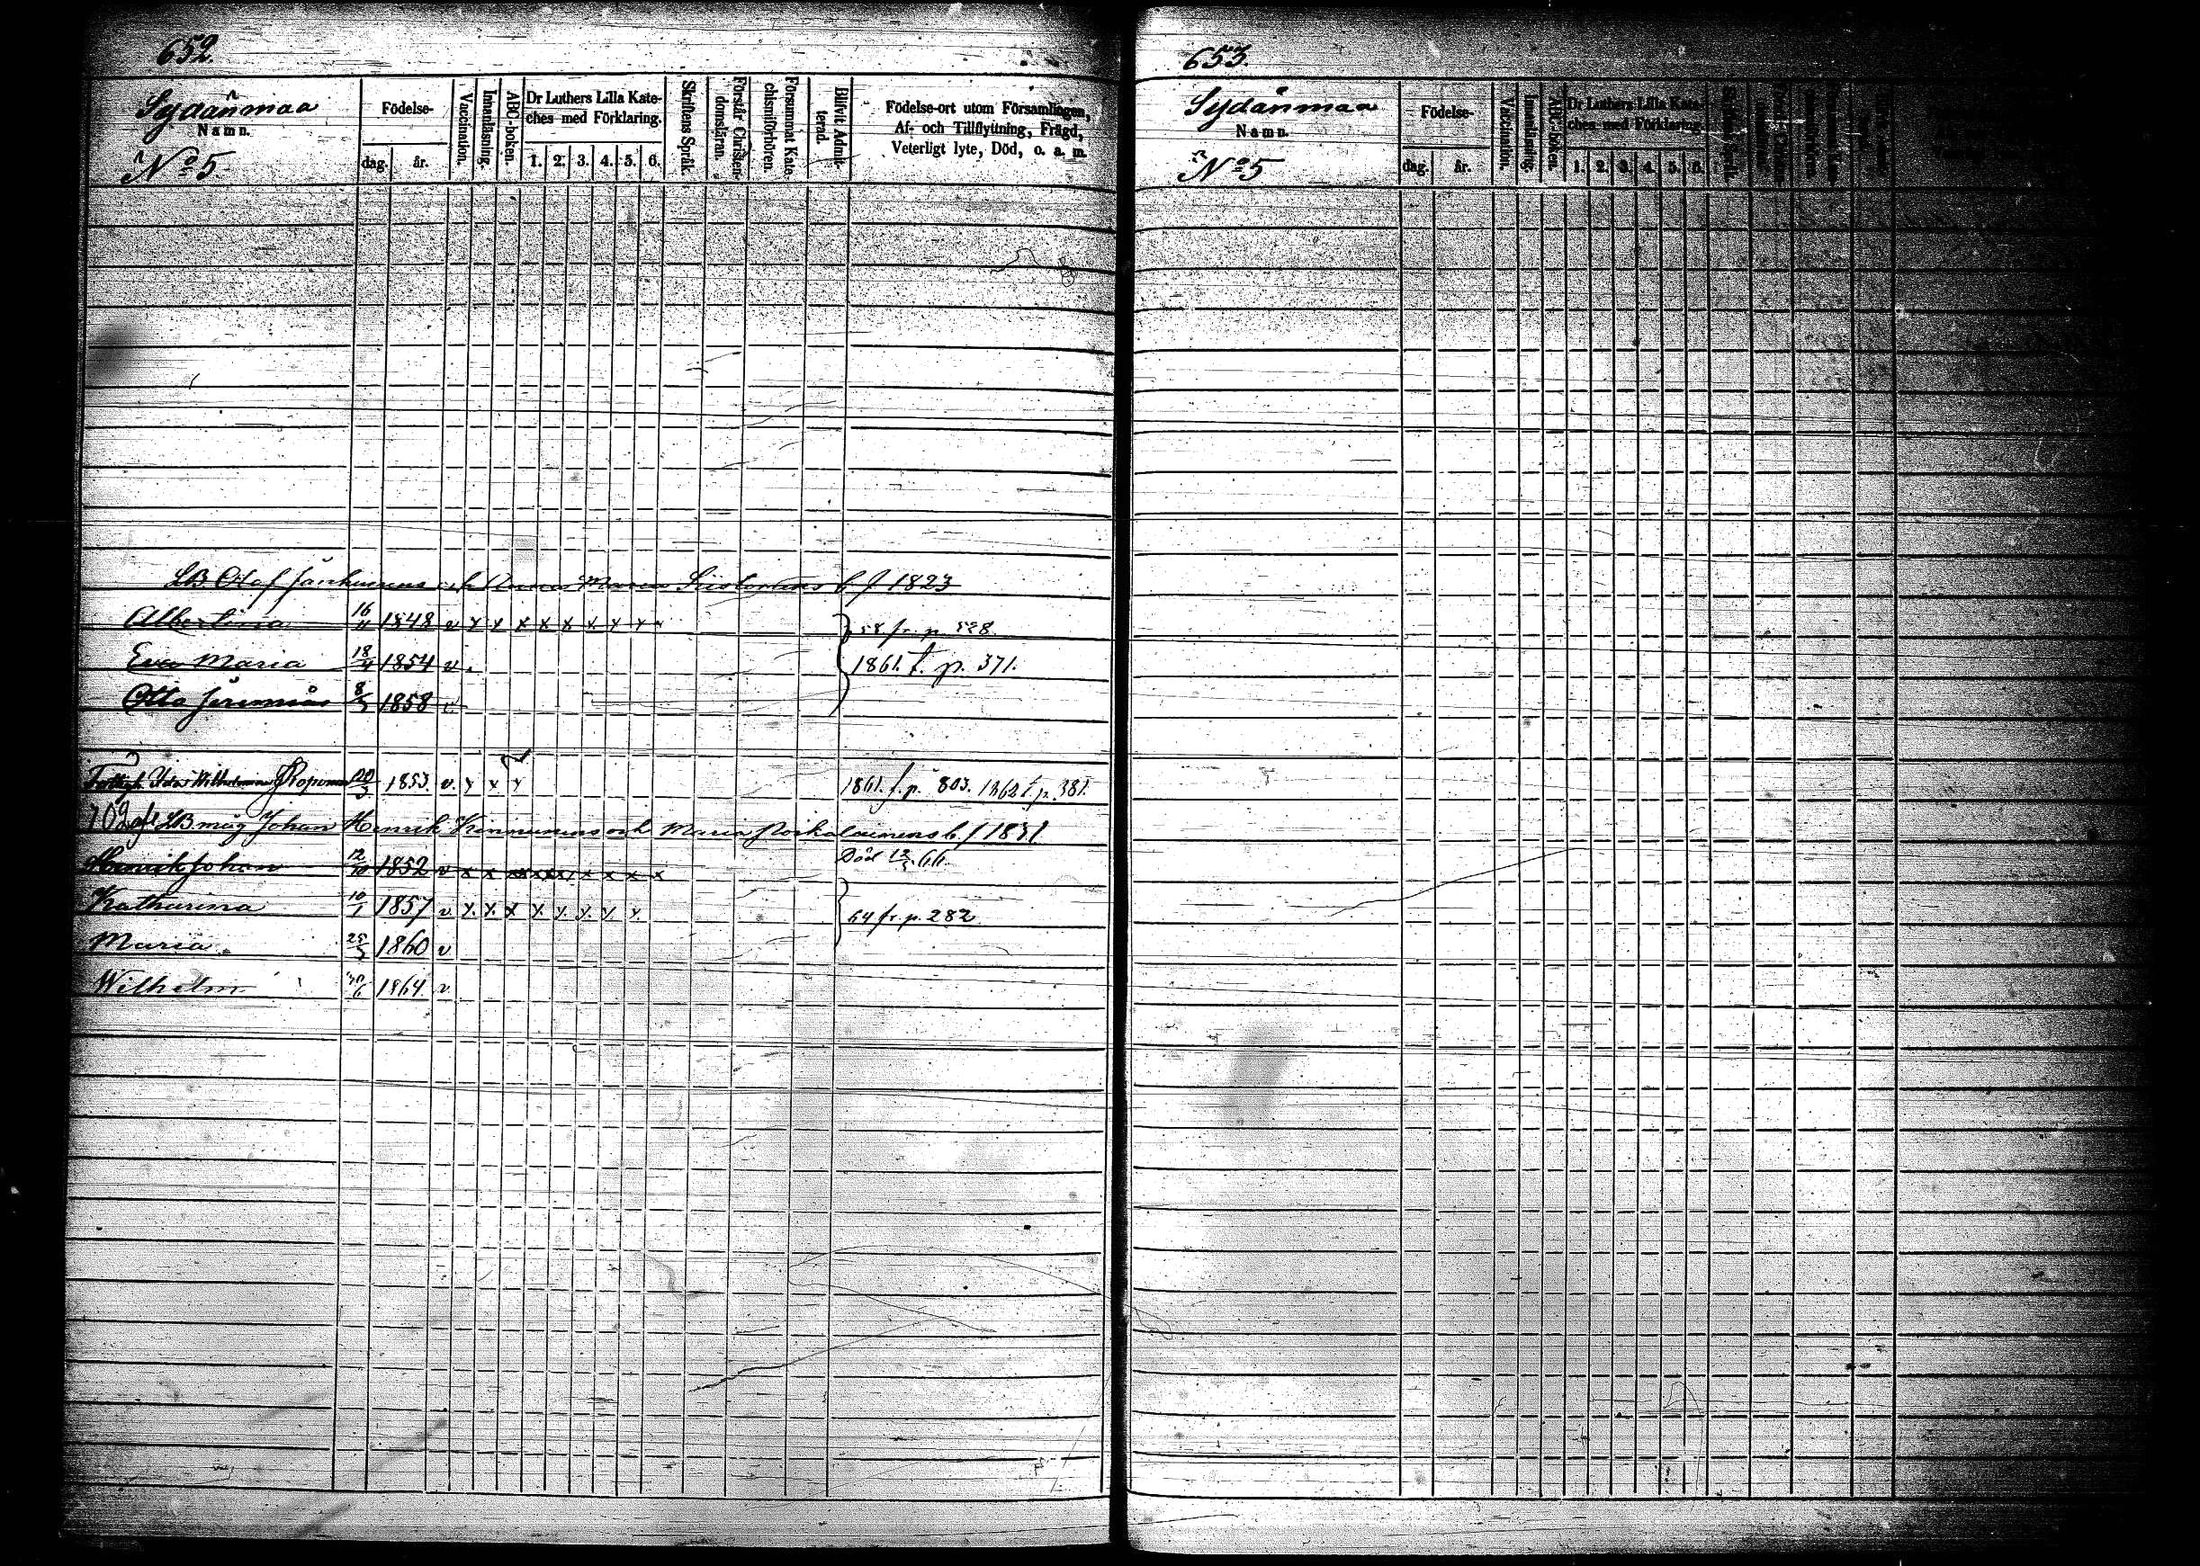 652.
Sydänmaa
Namn.
No 5
Födelse-
dag. år.
Vaccination.
Innanläsning.
ABC-boken.
Dr Luthers Lilla Kate-
ches med Förklaring.
1. 2. 3. 4. 5. 6.
Skriftens Språk.
Förstår Christen-
domsläran.
Försummat Kate-
chismiförhören.
Blifvit Admit-
terad.
Födelse-ort utom Församlingen,
Af- och Tillflyttning, Frägd,
Veterligt lyte, Död, o. a. m.
LB Olof och Anna Maria b. f 1823
Albertina 16/11 1848 v x x x x x x x x x 58 fr. p. 528.
Eva Maria 18/4 1854 v. 1861. t. p. 371.
Otto Jeremias 8/5 1858 v
Ida Wilhelmina Ropponen 20/3 1853. v. x x x 1861. f. p. 803. 1862 t. p. 381.
702 LB måg Johan Henrik Kinnunens och Maria b. f 1831
Henrik Johan 12/10 1852 v x x x x x x x x x Död 12/5 66.
Katharina 10/1 1857 v x. x. x x. x. x. x x. 64 fr. p. 282
Maria 25/3 1860 v
Wilhelm 1864. v.
653.
Sydänmaa
Namn.
No 5
Födelse-
dag. år.
Vaccination.
Innanläsning.
ABC-boken.
Dr Luthers Lilla Kate-
ches med Förklaring.
1. 2. 3. 4. 5. 6.